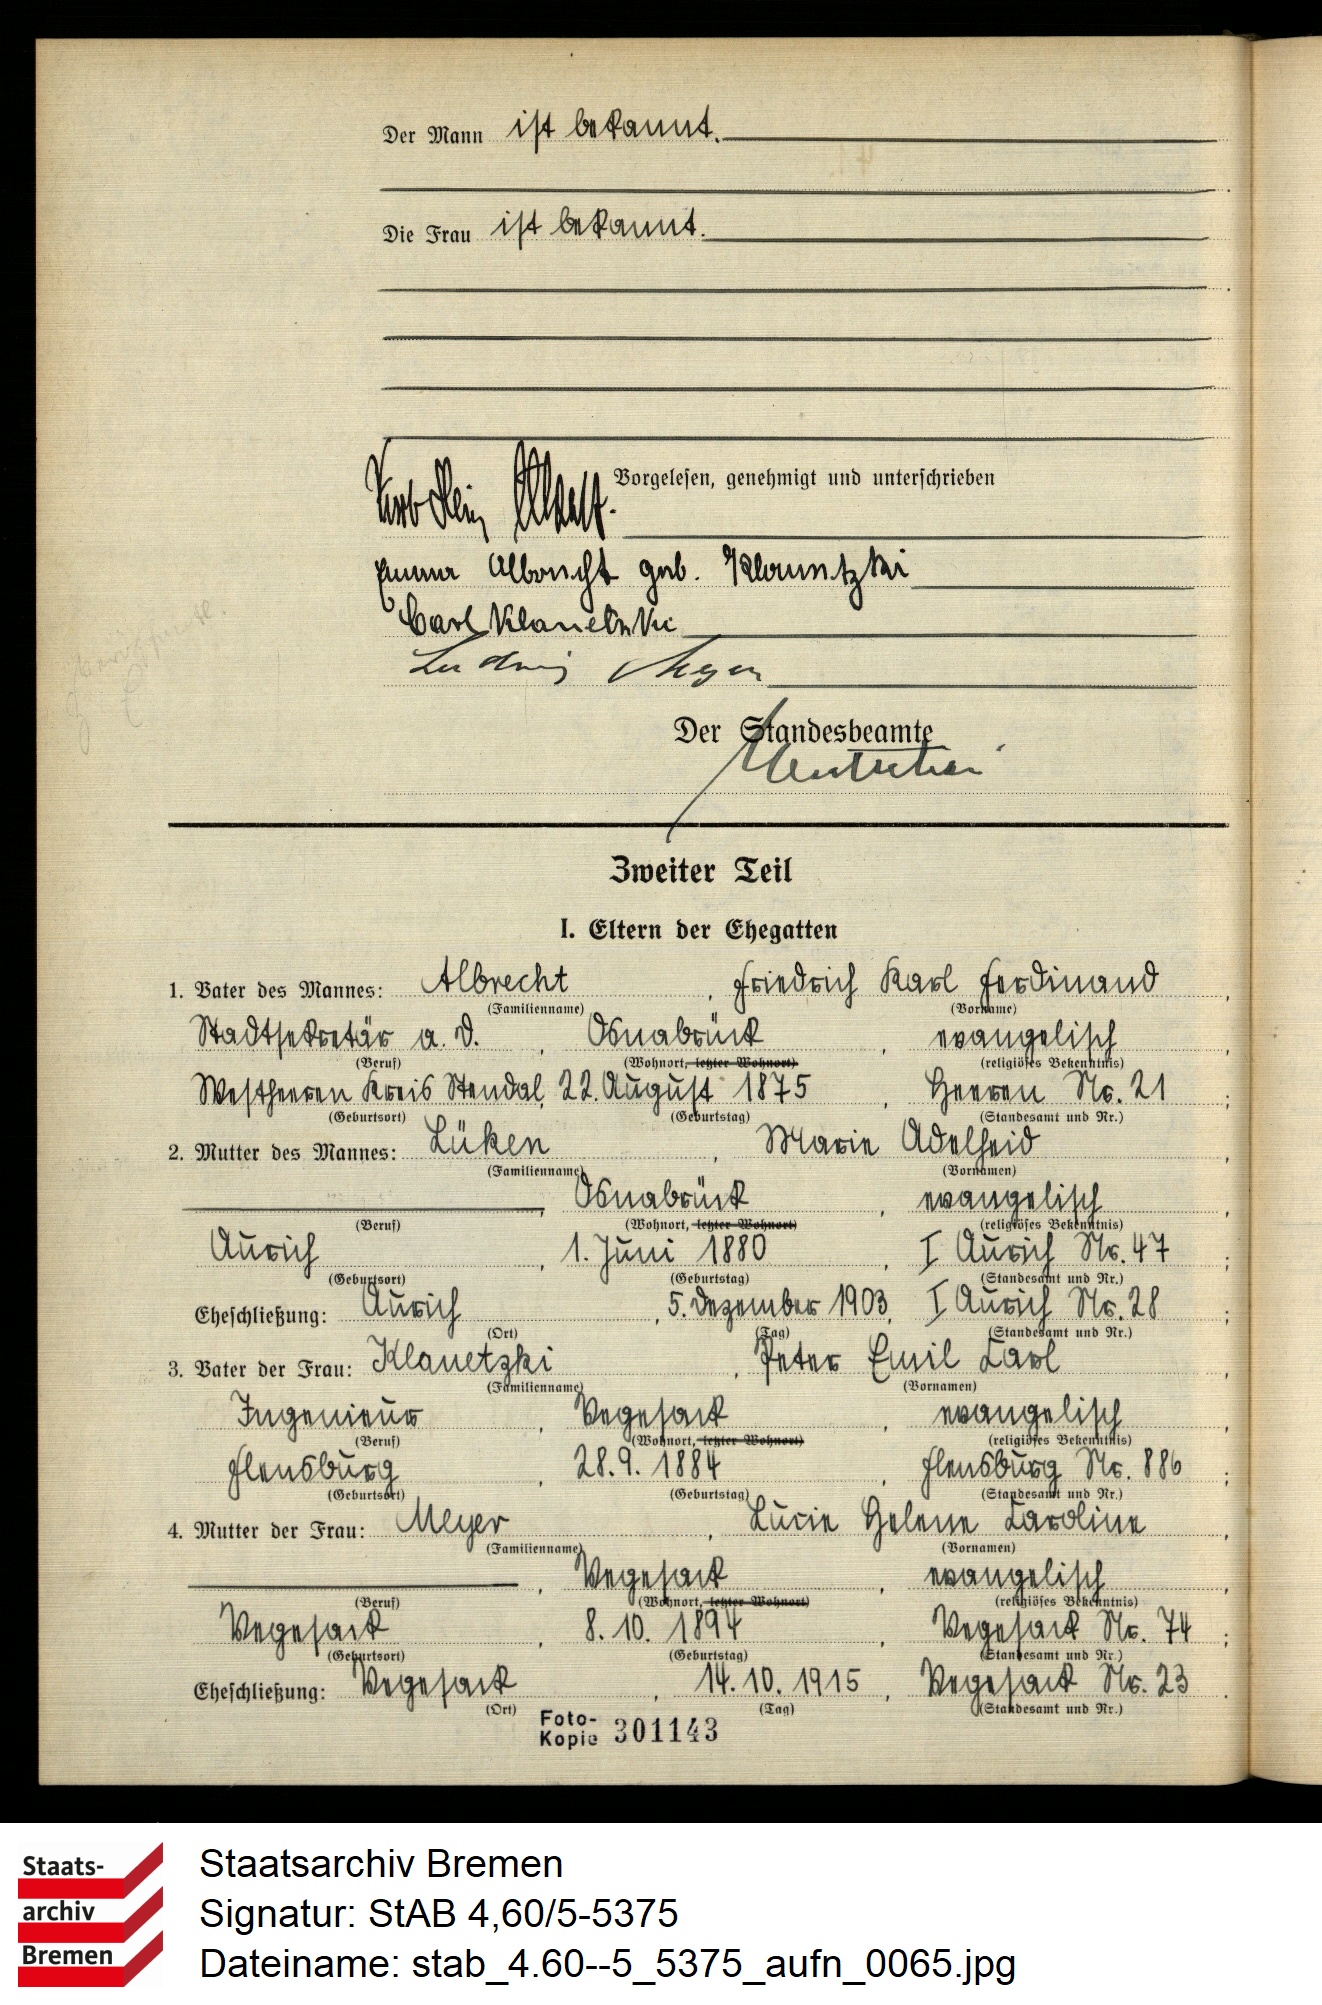 Der Mann ist bekannt.
Die Frau ist bekannt.
Vorgelesen, genehmigt und unterschrieben
Emma Albrecht geb. Klanetzki
Carl Klanetzki
Ludwig Meyer
Der Standesbeamte
Zweiter Teil
I. Eltern der Ehegatten
1. Vater des Mannes: Albrecht, Friedrich Karl Ferdinand,
(Familienname) (Vorname)
Stadtsekretär a. D., Osnabrück, evangelisch,
(Beruf) (Wohnort, letzter Wohnort) (religiöses Bekenntnis)
Westheeren Kreis Stendal, 22. August 1875, Heeren Nr. 21;
(Geburtsort) (Geburtstag) (Standesamt und Nr.)
2. Mutter des Mannes: Lüken, Marie Adelheid,
(Familienname) (Vornamen)
Osnabrück, evangelisch,
(Beruf) (Wohnort, letzter Wohnort) (religiöses Bekenntnis)
Aurich, 1. Juni 1880, I Aurich Nr. 47;
(Geburtsort) (Geburtstag) (Standesamt und Nr.)
Eheschließung: Aurich, 5. Dezember 1903, I Aurich Nr. 28;
(Ort) (Tag) (Standesamt und Nr.)
3. Vater der Frau: Klanetzki, Peter Emil Carl,
(Familienname) (Vornamen)
Ingenieur, Vegesack, evangelisch,
(Beruf) (Wohnort, letzter Wohnort) (religiöses Bekenntnis)
Flensburg, 28. 9. 1884, Flensburg Nr. 886;
(Geburtsort) (Geburtstag) (Standesamt und Nr.)
4. Mutter der Frau: Meyer, Lucie Helene Caroline,
(Familienname) (Vornamen)
Vegesack, evangelisch,
(Beruf) (Wohnort, letzter Wohnort) (religiöses Bekenntnis)
Vegesack, 8. 10. 1894, Vegesack Nr. 74;
(Geburtsort) (Geburtstag) (Standesamt und Nr.)
Eheschließung: Vegesack, 14. 10. 1915, Vegesack Nr. 23.
(Ort) (Tag) (Standesamt und Nr.)
Foto-
Kopie 301143
Staats-
archiv
Bremen
Staatsarchiv Bremen
Signatur: StAB 4,60/5-5375
Dateiname: stab_4.60--5_5375_aufn_0065.jpg